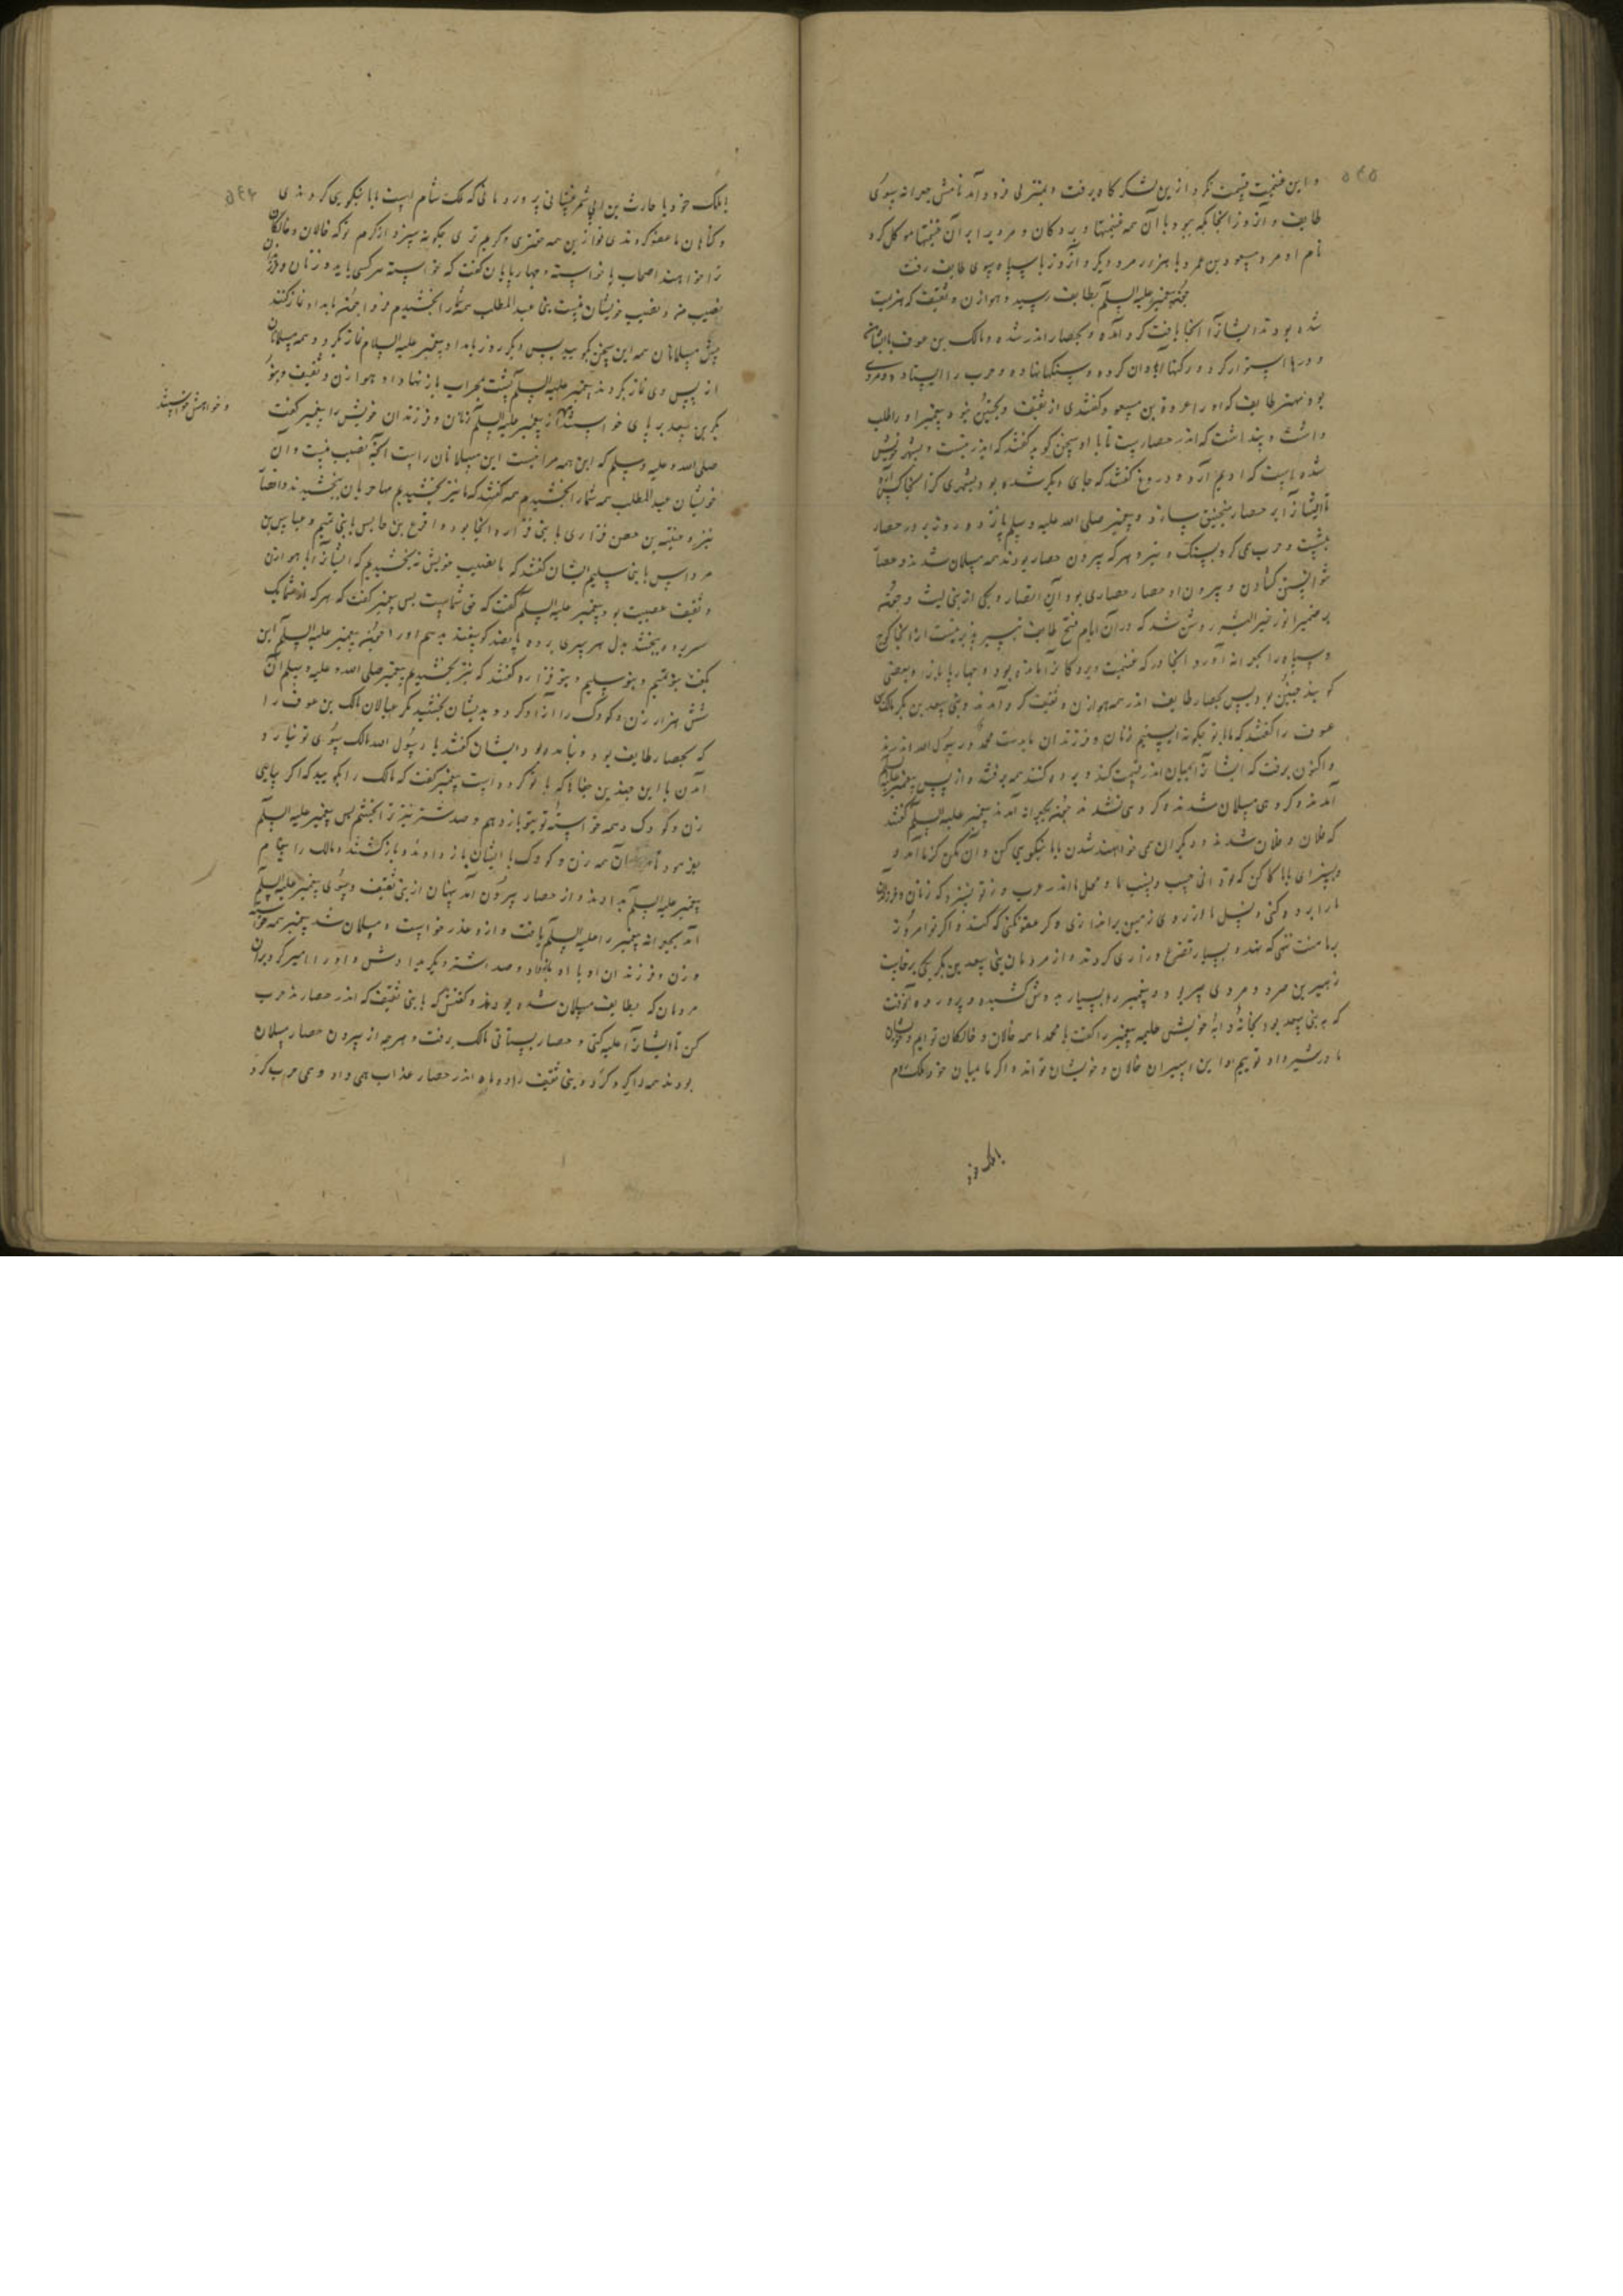 و این غنیمت قسمت نکرد از این لشکرگاه برفت و بمنزلی فرود آمد نامش جعرانه بسوی
طایف و آنروز آنجا بکه بود با آن همه غنیمتها و بردکان و مردیرا بر آن غنیمتها موکل کرد
نام او مرد مسعود بن عمرو با هزار مرد دیکر و آنروز با سپاه سوی طایف رفت
چون پیغمبر علیه السلم بطایف رسید و هوازن و ثقیف که هزیمت
شده بودند ایشانرا آنجا یافت کرد آمده و بحصار اندر شده و مالک بن عوف با ایشان
و درها استوار کرده و سنکها نهاده و حرب را ایستاده و مردی
بود مهتر طایف که او را عروة بن مسعود کفتندی از ثقیف و پیغمبر او را طلب
داشت و پنداشت که اندر حصارست تا با او سخن کوید کفتند که ایدر نیست و بشهر
شده است که ادیم آرد و دروغ کفتند که جای دیکر شده بود و بشهری کز آنجا
تا ایشانرا بر حصار منجنیق سازد و پیغمبر صلی الله علیه وسلم پانزده روز بر در حصار
بنشست و حرب می کرد بسنک و تیر و هر که بیرون حصار بودند همه مسلمان شدند و حصار
نتوانستن کشادن و بیرون از حصار حصاری بود آن انصار و یکی از بنی لیث و چون
بر ضمیر انور خیر البشر روشن شد که در آن ایام فتح طایف میسر پذیر نیست از آنجا کوچ
و سپاه را بجعرانه آورد آنجا در که غنیمت و بردکانرا مانده بود و چهارپایانرا و بعضی
کویند چنین بود پس بحصار طایف اندر همه هوازن و ثقیف کرد آمدند و بنی سعد بن بکر مالک
عوف را کفتند که ما با تو چکونه ایستیم زنان و فرزندان ما بدست محمد رسول الله اندرند
و اکنون برفت که ایشانرا بمیان اندر قسمت کند و برده کنند همه برفتند و از پس پیغمبر علیه السلم
آمدند و کروهی مسلمان شدند و کروهی نشدند چون بجعرانه آمدند پیغمبر علیه السلم کفتند
که فلان و فلان شدند و دیکران می خواهند شدن با ما نیکویی کن و آن مکن کز ما آمد و
و بسزای ما کار کن که تو دانی حسب و نسب ما و محل ما اندر عرب و ز تو نسزد که زنان و فرزندان
ما را برده کنی و نسل ما از روی زمین براندازی و کر عفو نکنی که کند و اکر تو امروز
بر ما منت نهی که نهد و بسیار تضرع و زاری کردند و از مردمان بنی سعد بن بکر یکی برخاست
زهیر بن صرد و مردی پیر بود و پیغمبر را بسیار بدوش کشیده و پرورده آنوقت
که به بنی سعد بود بخانۀ دایۀ خویش حلیمه پیغمبر را کفت یا محمد ما همه خالان و خالکان توایم و خویشان
مادر شیر داد توییم و این اسیران خالان و خویشان تواند و اکر ما میان خود ملک شام
بملک خود
با ملک خود یا حارث بن ابی شمر غسانی پروردمانی که ملک شام است با ما نیکویی کردندی
و کناهان ما عفو کردندی تو ازین همه مهتری و کریم تری چکونه سزد از کرم تو که خالان و خالکان
ترا خواهند اصحاب یا خواسته و چهارپایان کفت که خواسته هر کسی باید و زنان و فرزندان
نصیب من و نصیب خویشان منست بنی عبد المطلب همه شما را بخشیدم فردا چون بامداد نماز کنند
پیش مسلمانان همه این سخن بکویید پس دیکر روز بامداد پیغمبر علیه السلام نماز بکرد و همه مسلمانان
از پس وی نماز بکردند پیغمبر علیه السلم پشت بمحراب باز نهاد و هوازن و ثقیف و بنو
بکر بن سعد بر پای خواستند از پیغمبر علیه السلم زنان و فرزندان خویش را پیغمبر کفت
و خواهش خواستند
صلی الله و علیه وسلم که این همه مرا نیست این مسلمانان راست آنچه نصیب منست و آن
خویشان عبد المطلب همه شما را بخشیدم همه کفتند که ما نیز بخشیدیم مهاجریان ببخشیدند و انصار
نیز و عیینة بن حصن فزاری با بنی فزاره آنجا بود و اقرع بن حابس با بنی تمیم و عباس بن
مرداس با بنی سلیم ایشان کفتند که ما نصیب خویش نه بخشیدیم که ایشانرا با هوازن
و ثقیف عصبیت بود پیغمبر علیه السلم کفت که حق شماست پس پیغمبر کفت که هر که از شما یک
سر برده ببخشد بدل هر سری برده پانصد کوسفند بدهم او را چون پیغمبر علیه السلم این
بکفت بنو تمیم و بنو سلیم و بنو فزاره کفتند که نیز بخشیدیم پیغمبر صلی الله و علیه وسلم آن
شش هزار زن و کودک را آزاد کرد و بدیشان بخشید مکر عیالان مالک بن عوف را
که بحصار طایف بود و نیامده بود ایشان کفتند یا رسول الله مالک بسوی تو نیارد
آمدن با این چندین جفا که با تو کرده است پیغمبر کفت که مالک را بکویید که اکر بیایی
زن و کودک و همه خواستۀ تو بتو باز دهم و صد شتر نیز ترا بخشم پس پیغمبر علیه السلم
بفرمود تا آن همه زن و کودک با ایشان باز دادند و باز کشتند و مالک را پیغام
پیغمبر علیه السلم بدادند و از حصار بیرون آمد پنهان از بنی ثقیف و بسوی پیغمبر علیه السلم
آمد بجعرانه پیغمبر را علیه السلم یافت و ازو عذر خواست و مسلمان شد پیغمبر همه خواسته
و زن و فرزندان او با او باز داد و صد اشتر دیکر بدادش و او را امیر کرد بر آن
مردمان که بطایف مسلمان شده بودند و کفتش که با بنی ثقیف که اندر حصارند حرب
کن تا ایشانرا غلبه کنی و حصار بستانی مالک برفت و هر چه از بیرون حصار مسلمان
بودند همه را کرد کرد و بنی ثقیف را دو ماه اندر حصار عذاب همی داد و همی حرب کرد